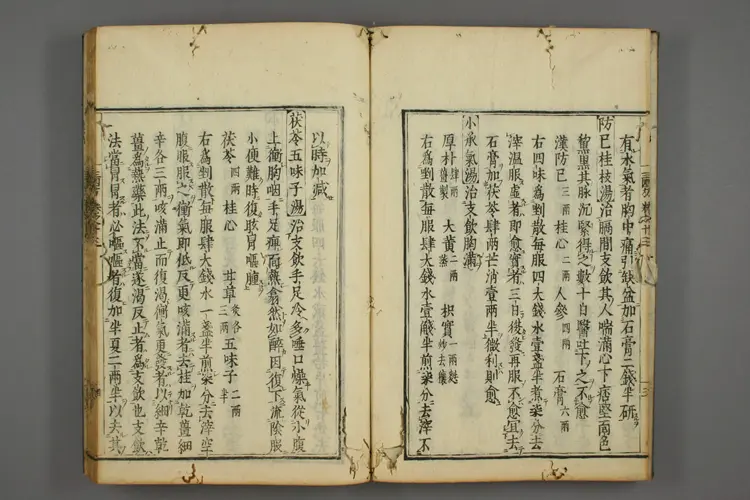 有水氣者胸中痛引缺盆加石膏二錢半研
防已桂枝湯治膈間支飲其人喘滿心下痞堅面色
黧黑其脉沉緊得之數十日醫吐下之不愈
漢防已三兩 桂心二兩 人參四兩 石膏六兩
右四味爲剉散每服四大錢水壹盞半煮柒分去
滓温服虛者即愈實者三日後發再服不愈宜去
石膏加茯苓肆兩芒消壹兩半微利則愈
小承氣湯治支飲胸滿
厚朴肆兩薑製 大黃二兩蒸 枳實一兩麩炒去穰
右爲剉散每服肆大錢水壹盞半煎柒分去滓不
以時加減
茯苓五味子湯治支飲手足冷多唾口燥氣從小腹
上衝胸咽手足痺面熱翕然如醉因復下流陰股
小便難時復眩冒嘔腫
茯苓四兩 桂心 甘草炙各三兩 五味子二兩半
右爲剉散每服肆大錢水一盞半煎柒分去滓空
腹服服之衝氣即低反更咳滿者去桂加乾薑細
辛各三兩咳滿止而復渴衝氣更發者以細辛乾
薑爲熱藥此法不當逐渴反止者爲支飲也支飲
法當冒冒者必嘔嘔者復加半夏二兩半以去其